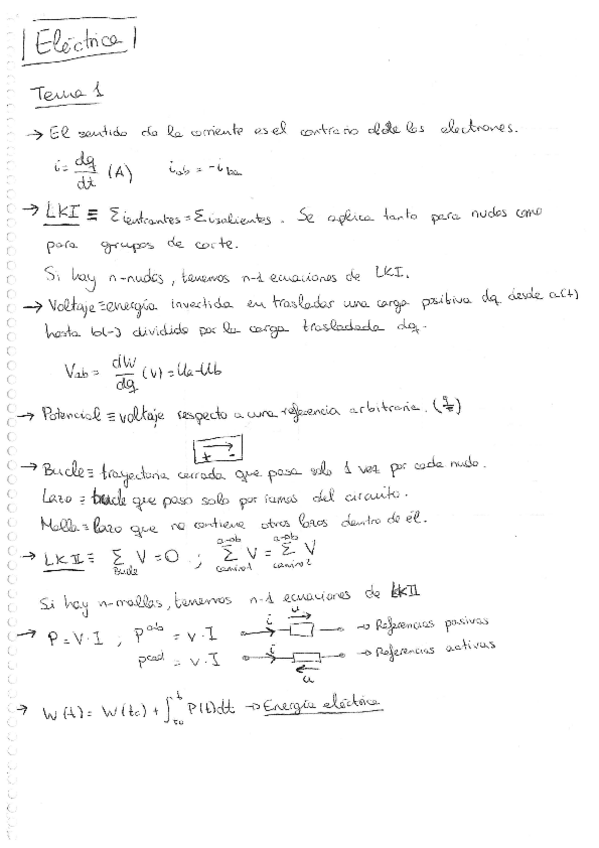 Eléctrica
Tema 1
→ El sentido de la corriente es el contrario al de los electrones.
i = dq/dt (A)   i_ab = -i_ba
→ LKI ≡ Σi entrantes = Σi salientes. Se aplica tanto para nudos como
para grupos de corte.
Si hay n-nudos, tenemos n-1 ecuaciones de LKI.
→ Voltaje = energía invertida en trasladar una carga positiva dq desde a(+)
hasta b(-) dividido por la carga trasladada dq.
V_ab = dW/dq (V) = Ua - Ub
→ Potencial ≡ voltaje respecto a una referencia arbitraria. (⏚)
+ → -
→ Bucle ≡ trayectoria cerrada que pasa solo 1 vez por cada nudo.
Lazo ≡ bucle que pasa solo por ramas del circuito.
Malla = lazo que no contiene otros lazos dentro de él.
→ LKII ≡ Σ V = 0 ; Σ V = Σ V
Bucle   a→b camino 1   a→b camino 2
Si hay n-mallas, tenemos n-1 ecuaciones de LKII
→ P = V·I ; P^abs = v·I   i   u → Referencias pasivas
P^ced = v·I   i   u → Referencias activas
→ W(t) = W(t₀) + ∫_t₀^t P(t)dt → Energía eléctrica